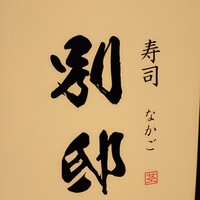 寿司 なかご
別邸
茎